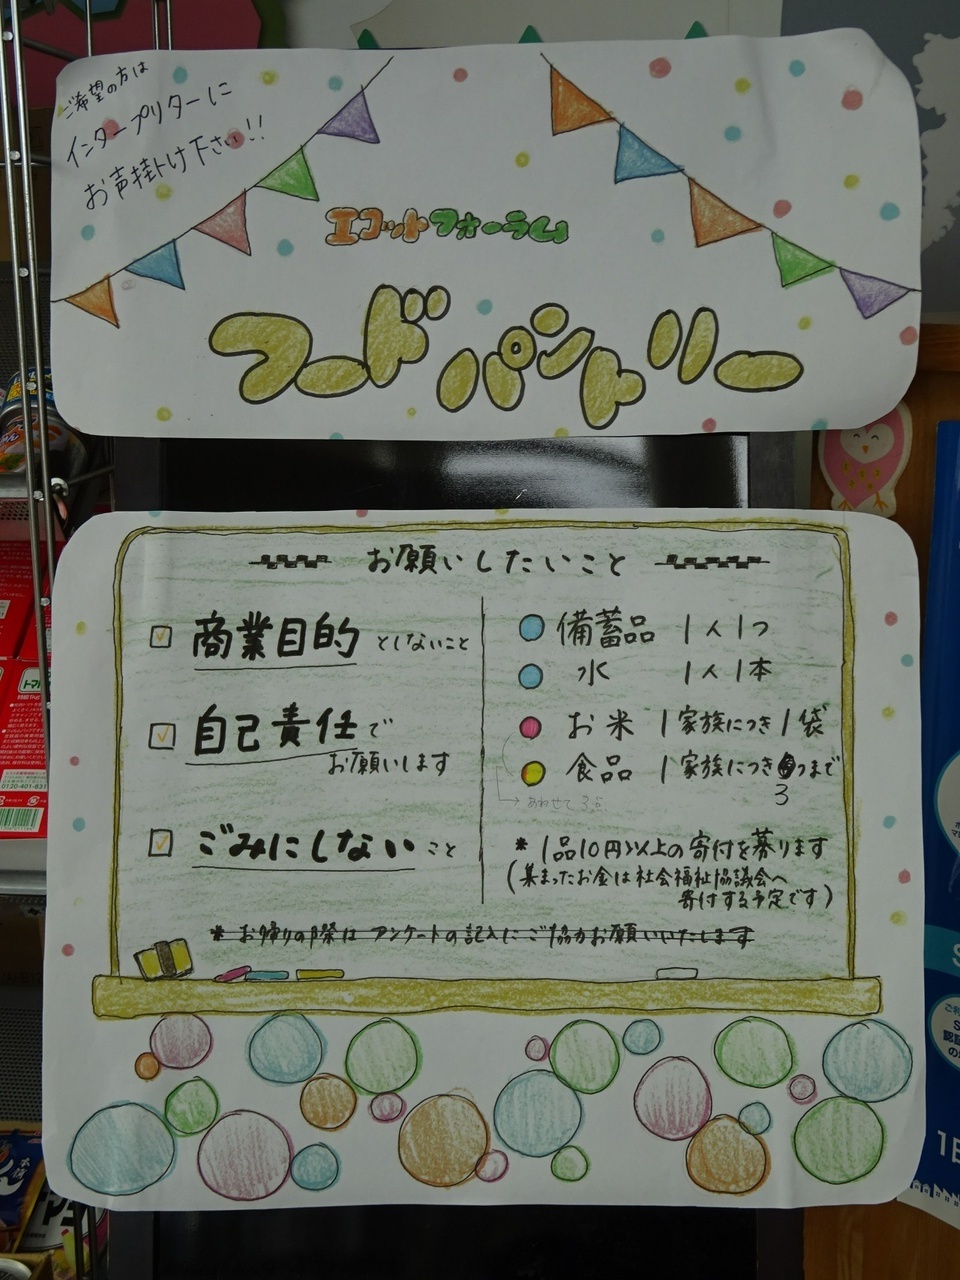 ご希望の方は
インタープリターに
お声掛け下さい!!
エコットフォーラム
フードパントリー
お願いしたいこと
商業目的 としないこと
自己責任で
お願いします
ごみにしない こと
備蓄品 1人1つ
水 1人1本
お米 1家族につき1袋
食品 1家族につき つまで
3
あわせて3点
* 1品10円以上の寄付を募ります
(集まったお金は社会福祉協議会へ
寄付する予定です)
* お帰りの際は アンケートの記入にご協力お願いいたします
0120-401-831